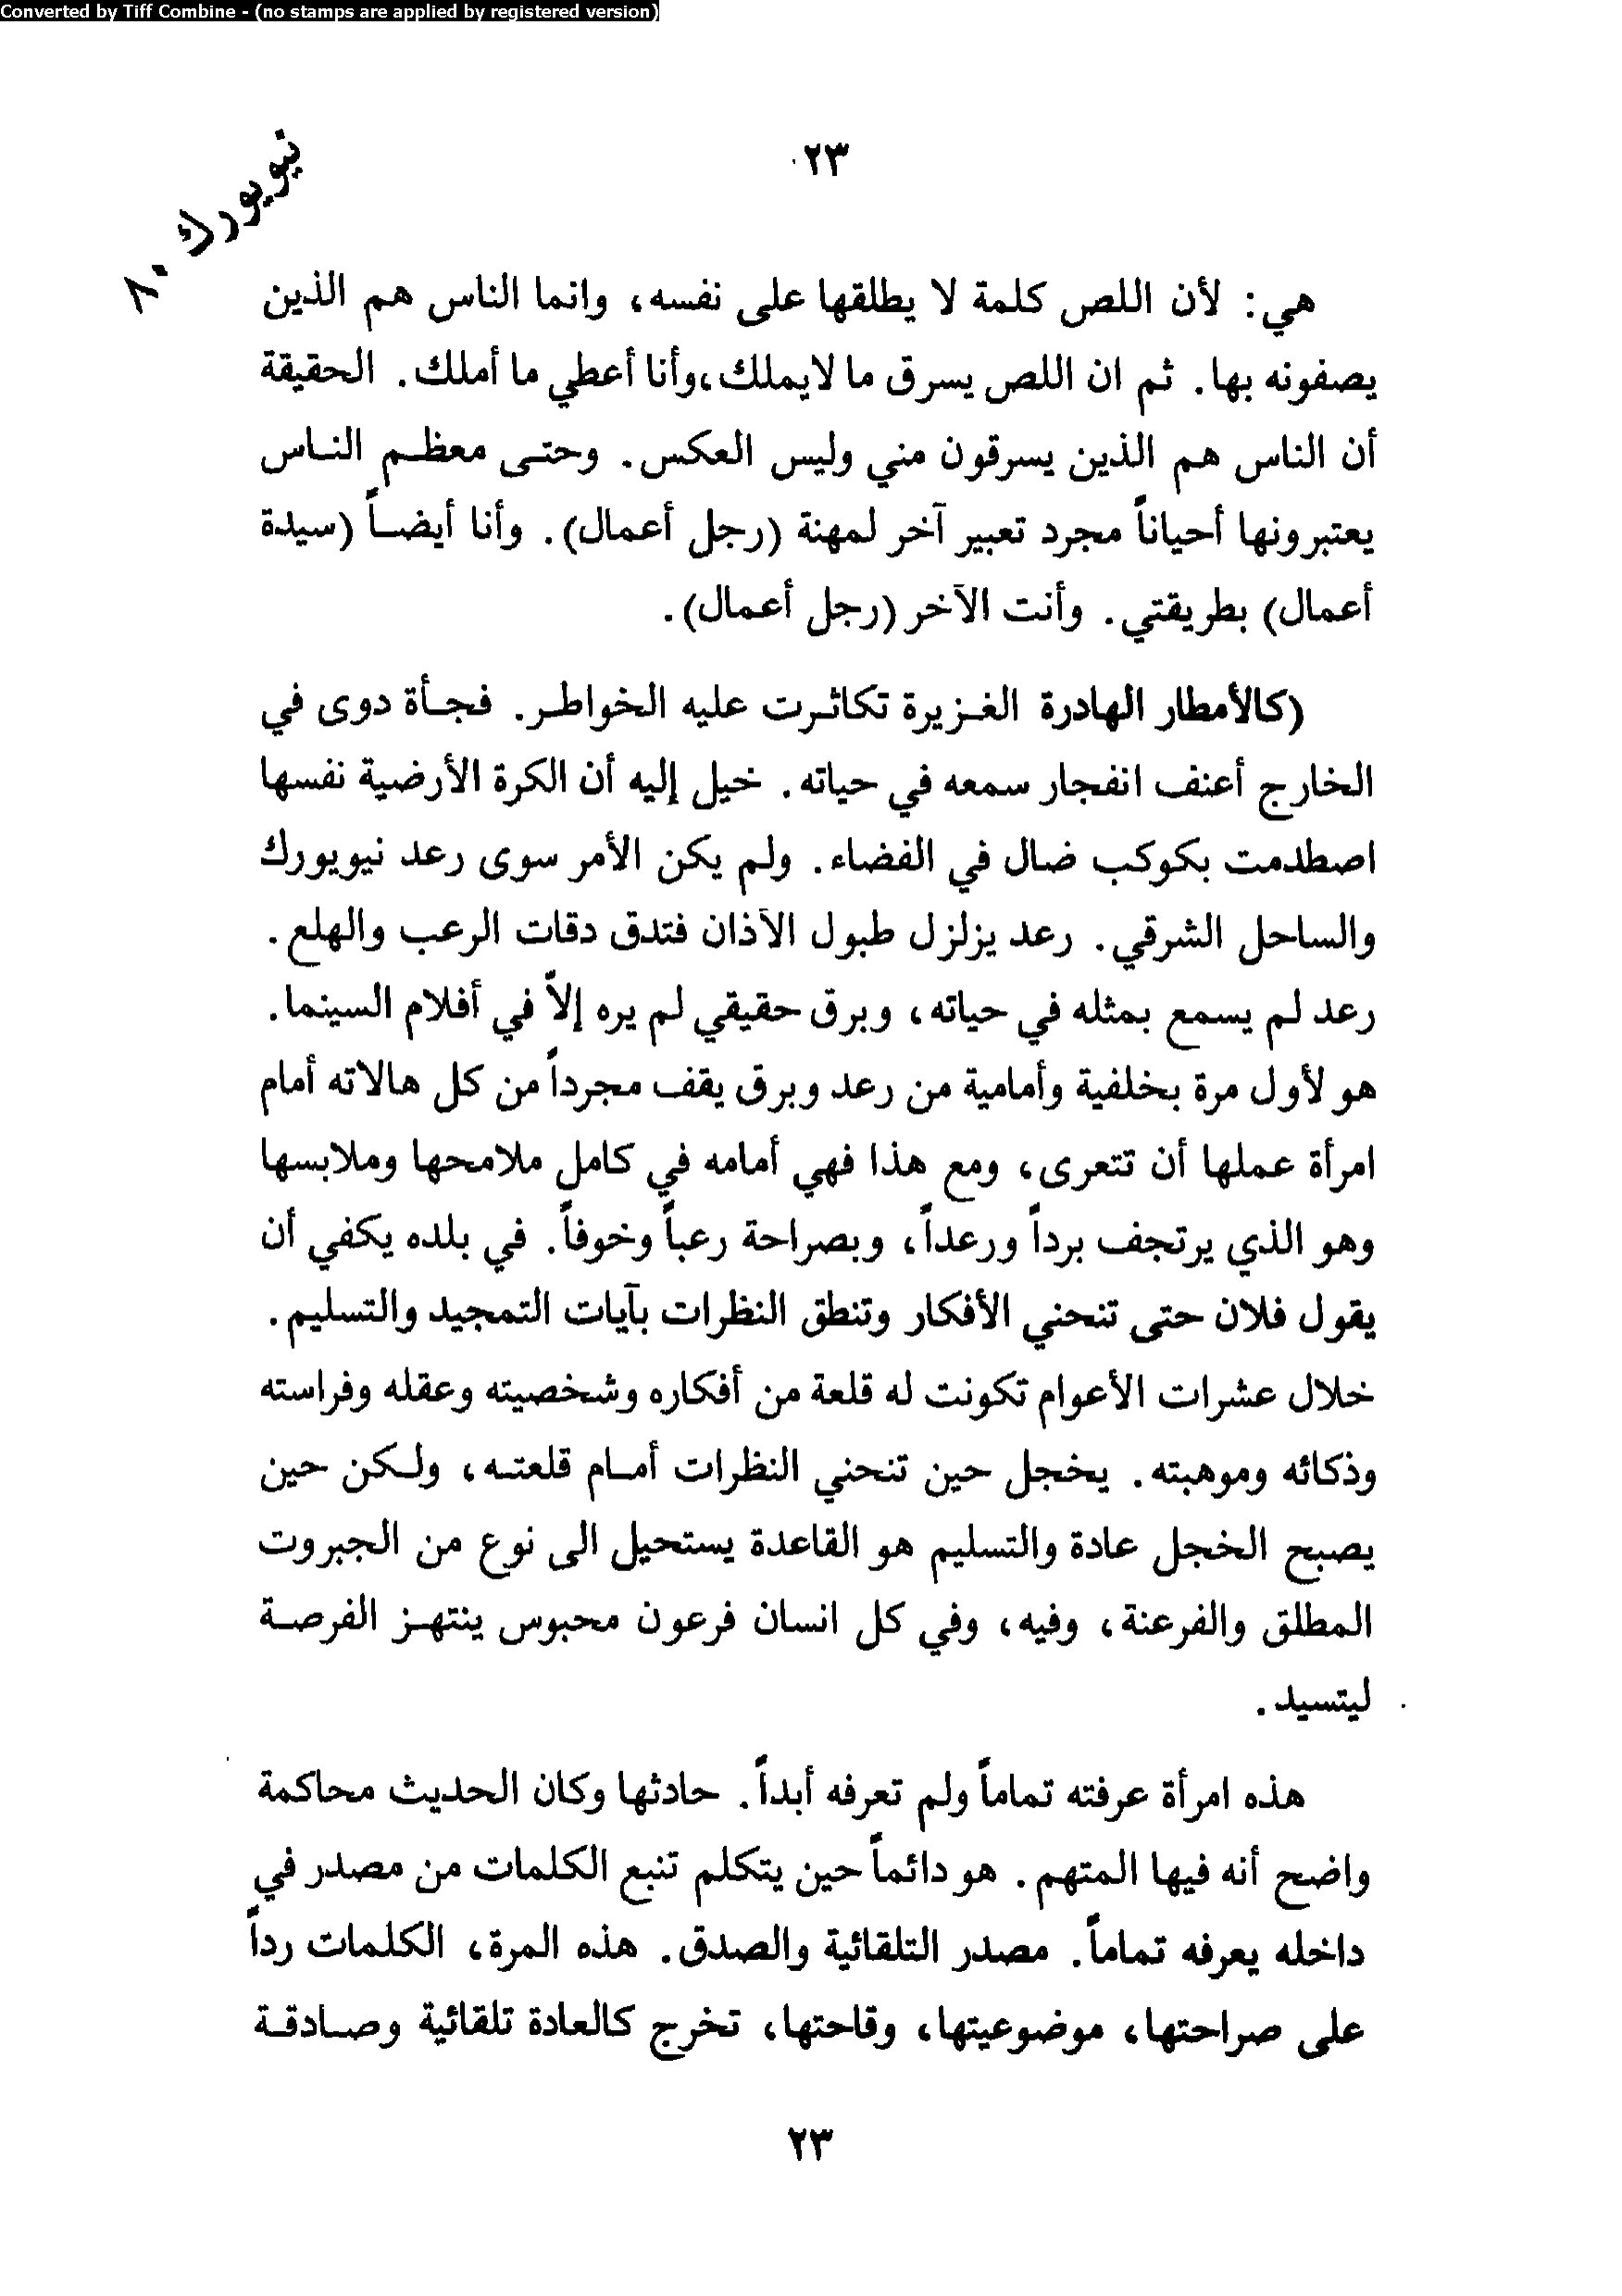 Converted by Tiff Combine - (no stamps are applied by registered version)
٢٣
نيويورك ٨٠
هي: لأن اللص كلمة لا يطلقها على نفسه، وانما الناس هم الذين
يصفونه بها. ثم ان اللص يسرق ما لايملك،وأنا أعطي ما أملك. الحقيقة
أن الناس هم الذين يسرقون مني وليس العكس. وحتى معظم الناس
يعتبرونها أحياناً مجرد تعبير آخر لمهنة (رجل أعمال). وأنا أيضاً (سيدة
أعمال) بطريقتي. وأنت الآخر (رجل أعمال).
(كالأمطار الهادرة الغزيرة تكاثرت عليه الخواطر. فجأة دوى في
الخارج أعنف انفجار سمعه في حياته. خيل إليه أن الكرة الأرضية نفسها
اصطدمت بكوكب ضال في الفضاء. ولم يكن الأمر سوى رعد نيويورك
والساحل الشرقي. رعد يزلزل طبول الأذان فتدق دقات الرعب والهلع.
رعد لم يسمع بمثله في حياته، وبرق حقيقي لم يره إلاّ في أفلام السينما.
هو لأول مرة بخلفية وأمامية من رعد وبرق يقف مجرداً من كل هالاته أمام
امرأة عملها أن تتعرى، ومع هذا فهي أمامه في كامل ملامحها وملابسها
وهو الذي يرتجف برداً ورعداً، وبصراحة رعباً وخوفاً. في بلده يكفي أن
يقول فلان حتى تنحني الأفكار وتنطق النظرات بآيات التمجيد والتسليم.
خلال عشرات الأعوام تكونت له قلعة من أفكاره وشخصيته وعقله وفراسته
وذكائه وموهبته. يخجل حين تنحني النظرات أمام قلعته، ولكن حين
يصبح الخجل عادة والتسليم هو القاعدة يستحيل الى نوع من الجبروت
المطلق والفرعنة، وفيه، وفي كل انسان فرعون محبوس ينتهز الفرصة
ليتسيد.
هذه امرأة عرفته تماماً ولم تعرفه أبداً. حادثها وكان الحديث محاكمة
واضح أنه فيها المتهم. هو دائماً حين يتكلم تنبع الكلمات من مصدر في
داخله يعرفه تماماً. مصدر التلقائية والصدق. هذه المرة، الكلمات رداً
على صراحتها، موضوعيتها، وقاحتها، تخرج كالعادة تلقائية وصادقة
٢٣